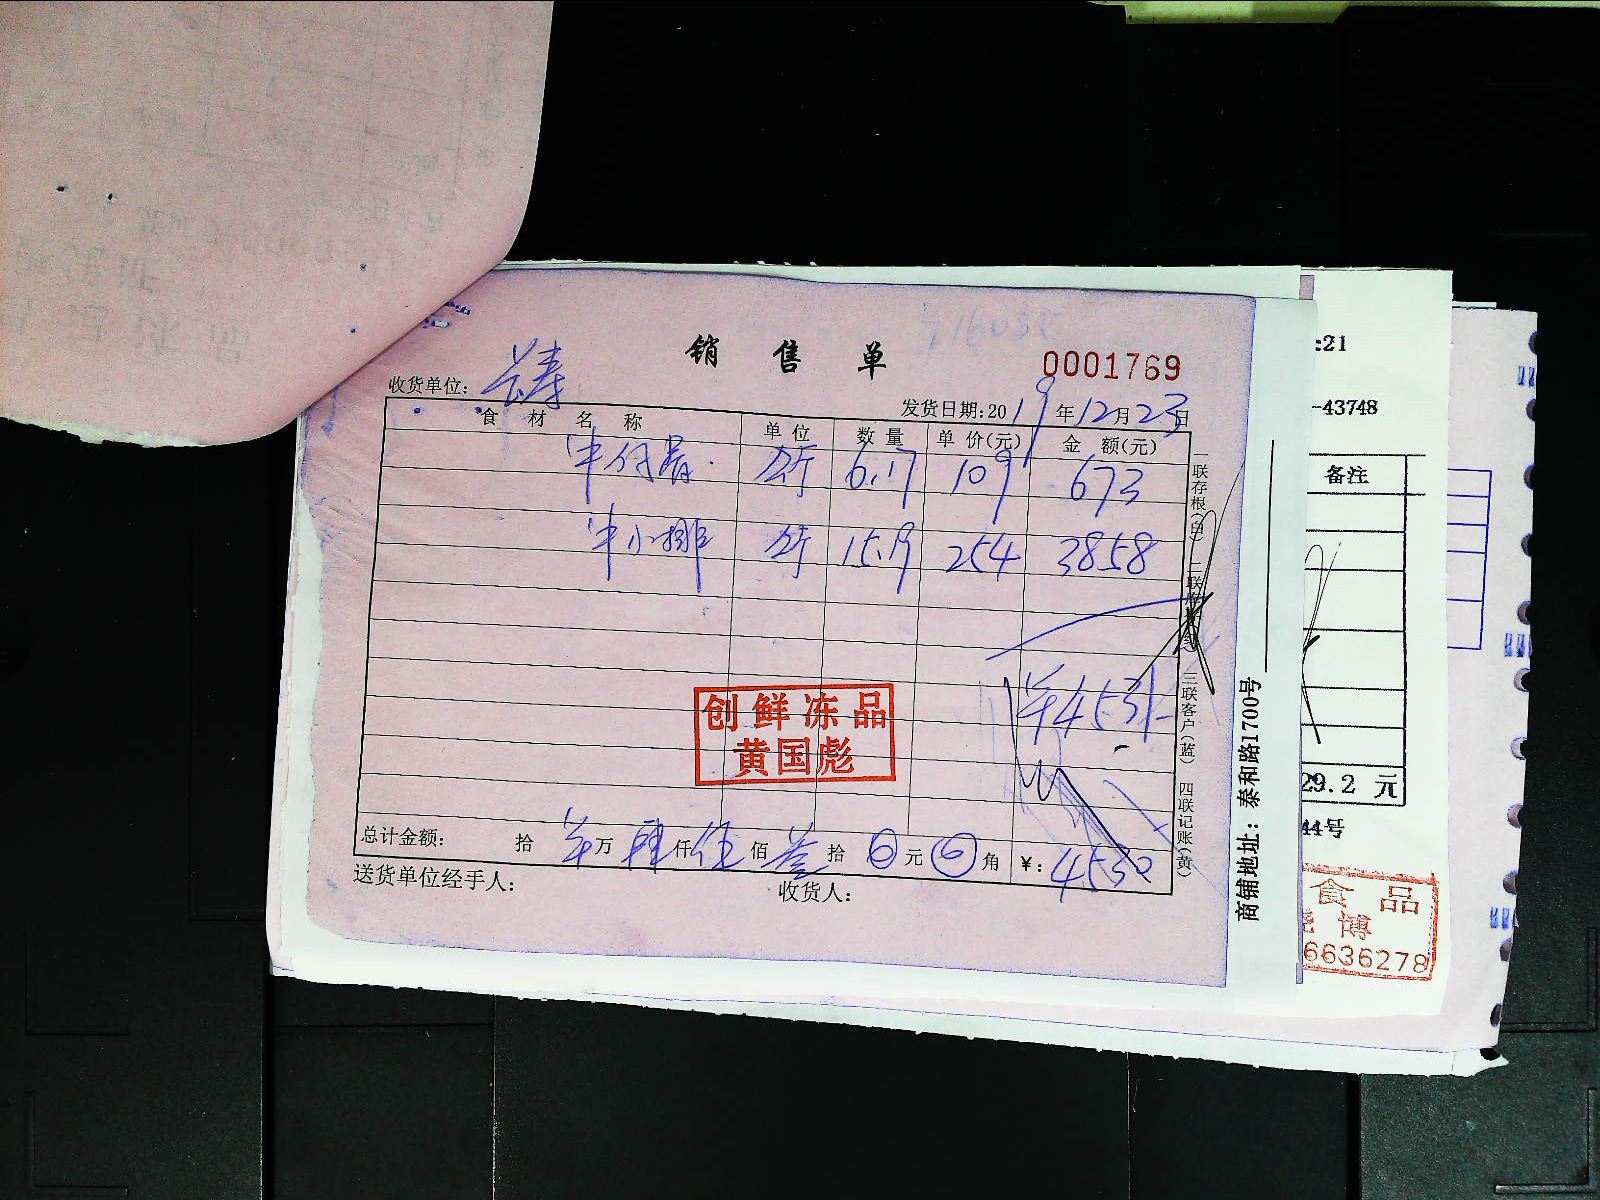 销 售 单
0001769
收货单位:
发货日期:2019年12月23日
食 材 名 称 单 位 数 量 单 价(元) 金 额(元)
6.17 109 673
牛小排 公斤 15.19 254 3858
¥4531-
创鲜冻品
黄国彪
总计金额: 拾 万 肆仟伍佰叁拾0元0角 ¥:4530
送货单位经手人: 收货人:
一联存根(白) 二联 三联客户(蓝) 四联记账(黄)
商铺地址:泰和路1700号
:21
-43748
备注
29.2 元
44号
食 品
博
6636278